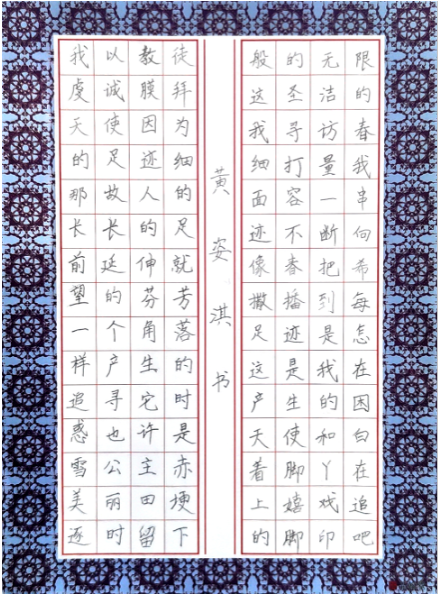 我以教徒般的无限
虔诚膜拜这圣洁的
天使因为我寻访春
的足迹细细打量我
那故人的面容一串
长长的足迹不断向
前延伸就像春把希
望的芬芳撒播到每
一个角落足迹是怎
样产生的这是我在
追寻它时产生的因
惑也许是天使和白
雪公主赤着脚丫在
美丽田埂上嬉戏追
逐时留下的脚印吧
黄姿淇书